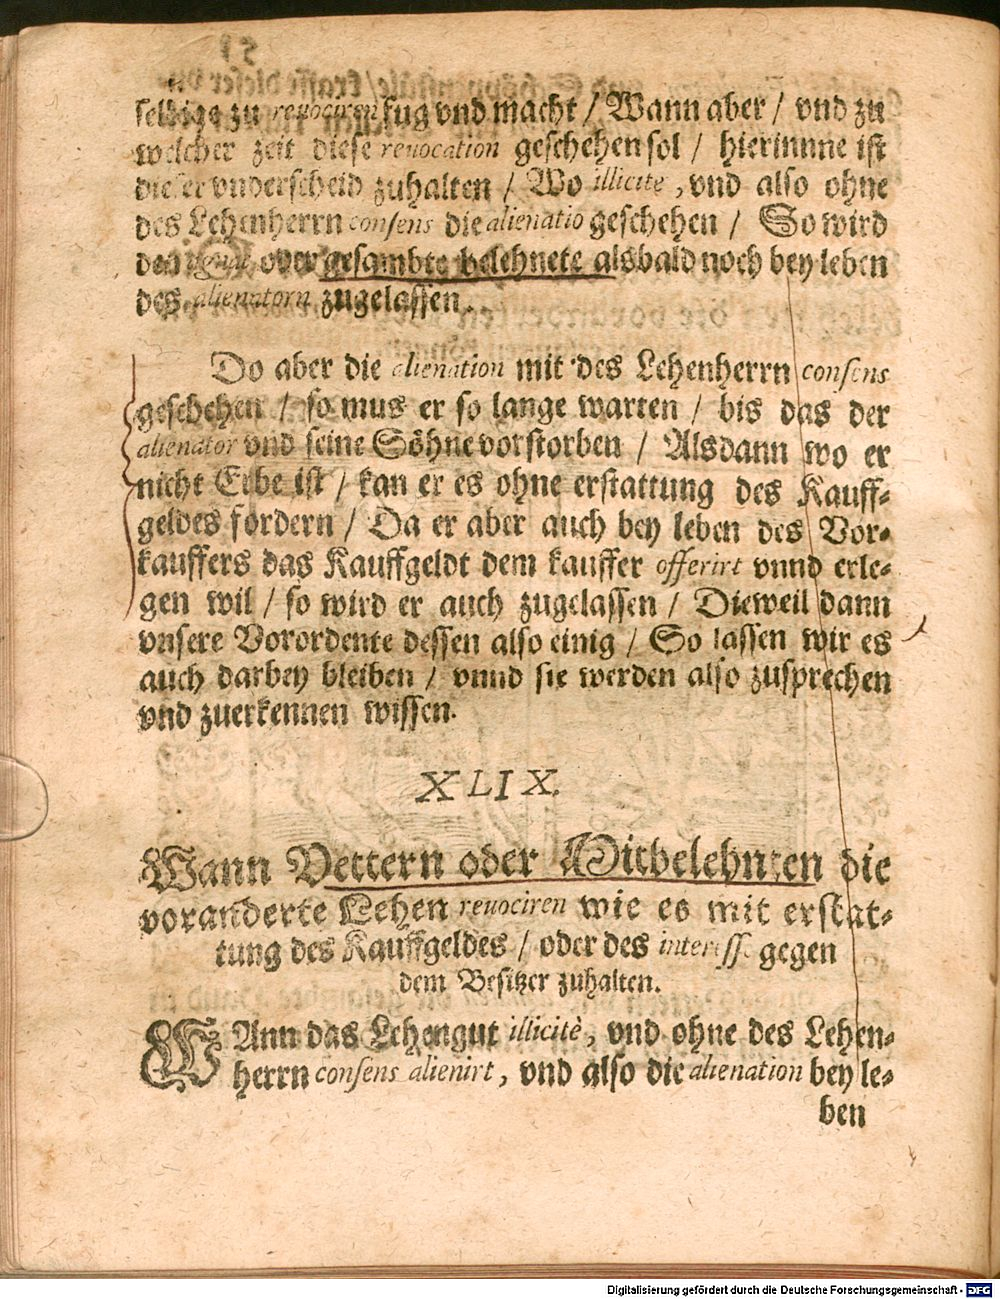 selbige zu reuociren fug vnd macht / Wann aber / vnd zu
welcher zeit diese reuocation geschehen sol / hierinnne ist
dieser vnderscheid zuhalten / Wo illicitè, vnd also ohne
des Lehenherrn consens die alienatio geschehen / So wird
der oder gesambte belehnete alsbald noch bey leben
des alienatorn zugelassen.
Do aber die alienation mit des Lehenherrn consens
geschehen / so mus er so lange warten / bis das der
alienator vnd seine Söhne vorstorben / Alsdann wo er
nicht Erbe ist / kan er es ohne erstattung des Kauff-
geldes fordern / Da er aber auch bey leben des Vor-
kauffers das Kauffgeldt dem kauffer offerirt vnnd erle-
gen wil / so wird er auch zugelassen / Dieweil dann
vnsere Vorordente dessen also einig / So lassen wir es
auch darbey bleiben / vnnd sie werden also zusprechen
vnd zuerkennen wissen.
XLIX.
Wann Vettern oder Mitbelehnten die
voranderte Lehen reuociren wie es mit erstat-
tung des Kauffgeldes / oder des interesse gegen
dem Besitzer zuhalten.
WAnn das Lehengut illicitè, vnd ohne des Lehen-
herrn consens alienirt, vnd also die alienation bey le-
ben
Digitalisierung gefördert durch die Deutsche Forschungsgemeinschaft - DFG